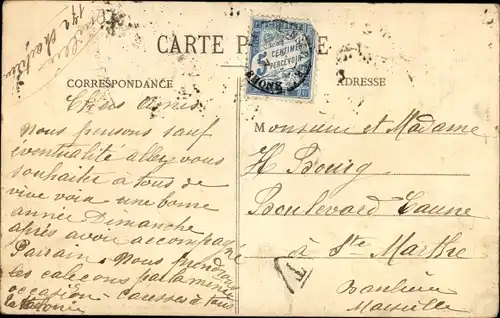 CARTE POSTALE
CORRESPONDANCE
ADRESSE
5 CENTIMES
À PERCEVOIR
RHONE
Chers Amis
Nous pensons sauf
éventualité aller vous
souhaiter à tous de
vive voix une bonne
année Dimanche
après avoir accompagné
Parrain. Nous prendrons
les caleçons par la même
occasion. Causses à tous
Monsieur et Madame
H. Bourg
Boulevard
à Ste Marthe
Banlieue
Marseille
T